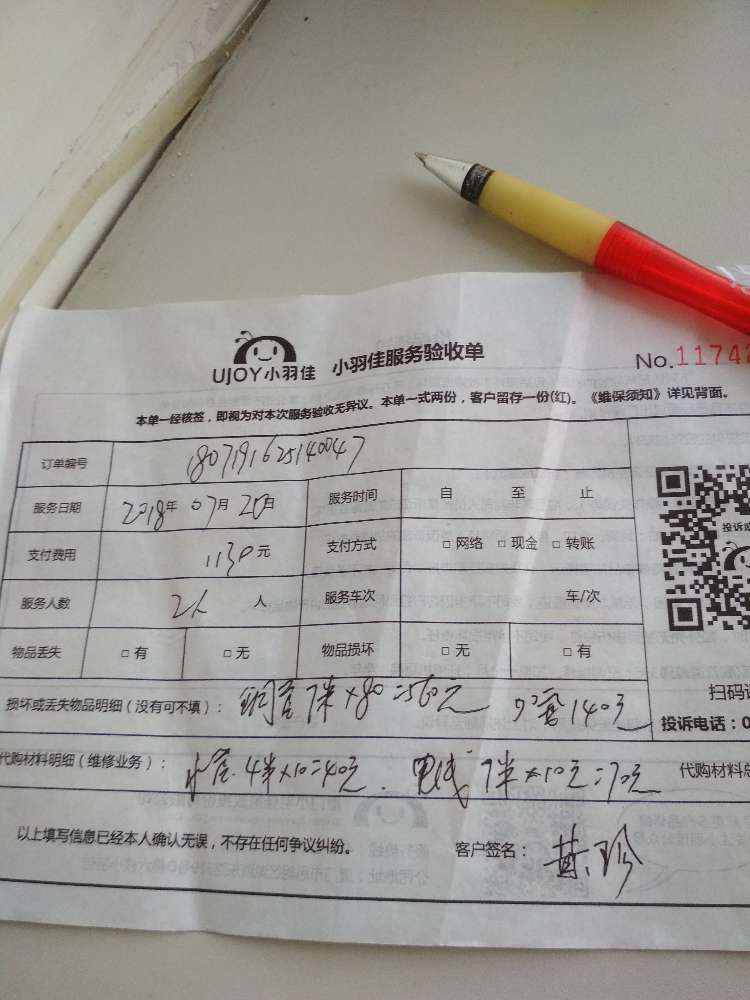 UJOY小羽佳 小羽佳服务验收单 No.11742
本单一经核签，即视为对本次服务验收无异议。本单一式两份，客户留存一份(红)。《维保须知》详见背面。
订单编号 1807191625140047
服务日期 2018年 07月 20日 服务时间 自 至 止
支付费用 1130元 支付方式 □ 网络 □ 现金 □ 转账
服务人数 2人 人 服务车次 车/次
物品丢失 □ 有 □ 无 物品损坏 □ 无 □ 有
投诉
扫码
损坏或丢失物品明细（没有可不填）： 铜管7米×80=560元 140元
投诉电话：0
代购材料明细（维修业务）： 水管.4米×10=40元. 电线7米×10元=70元 代购材料总
以上填写信息已经本人确认无误，不存在任何争议纠纷。 客户签名：